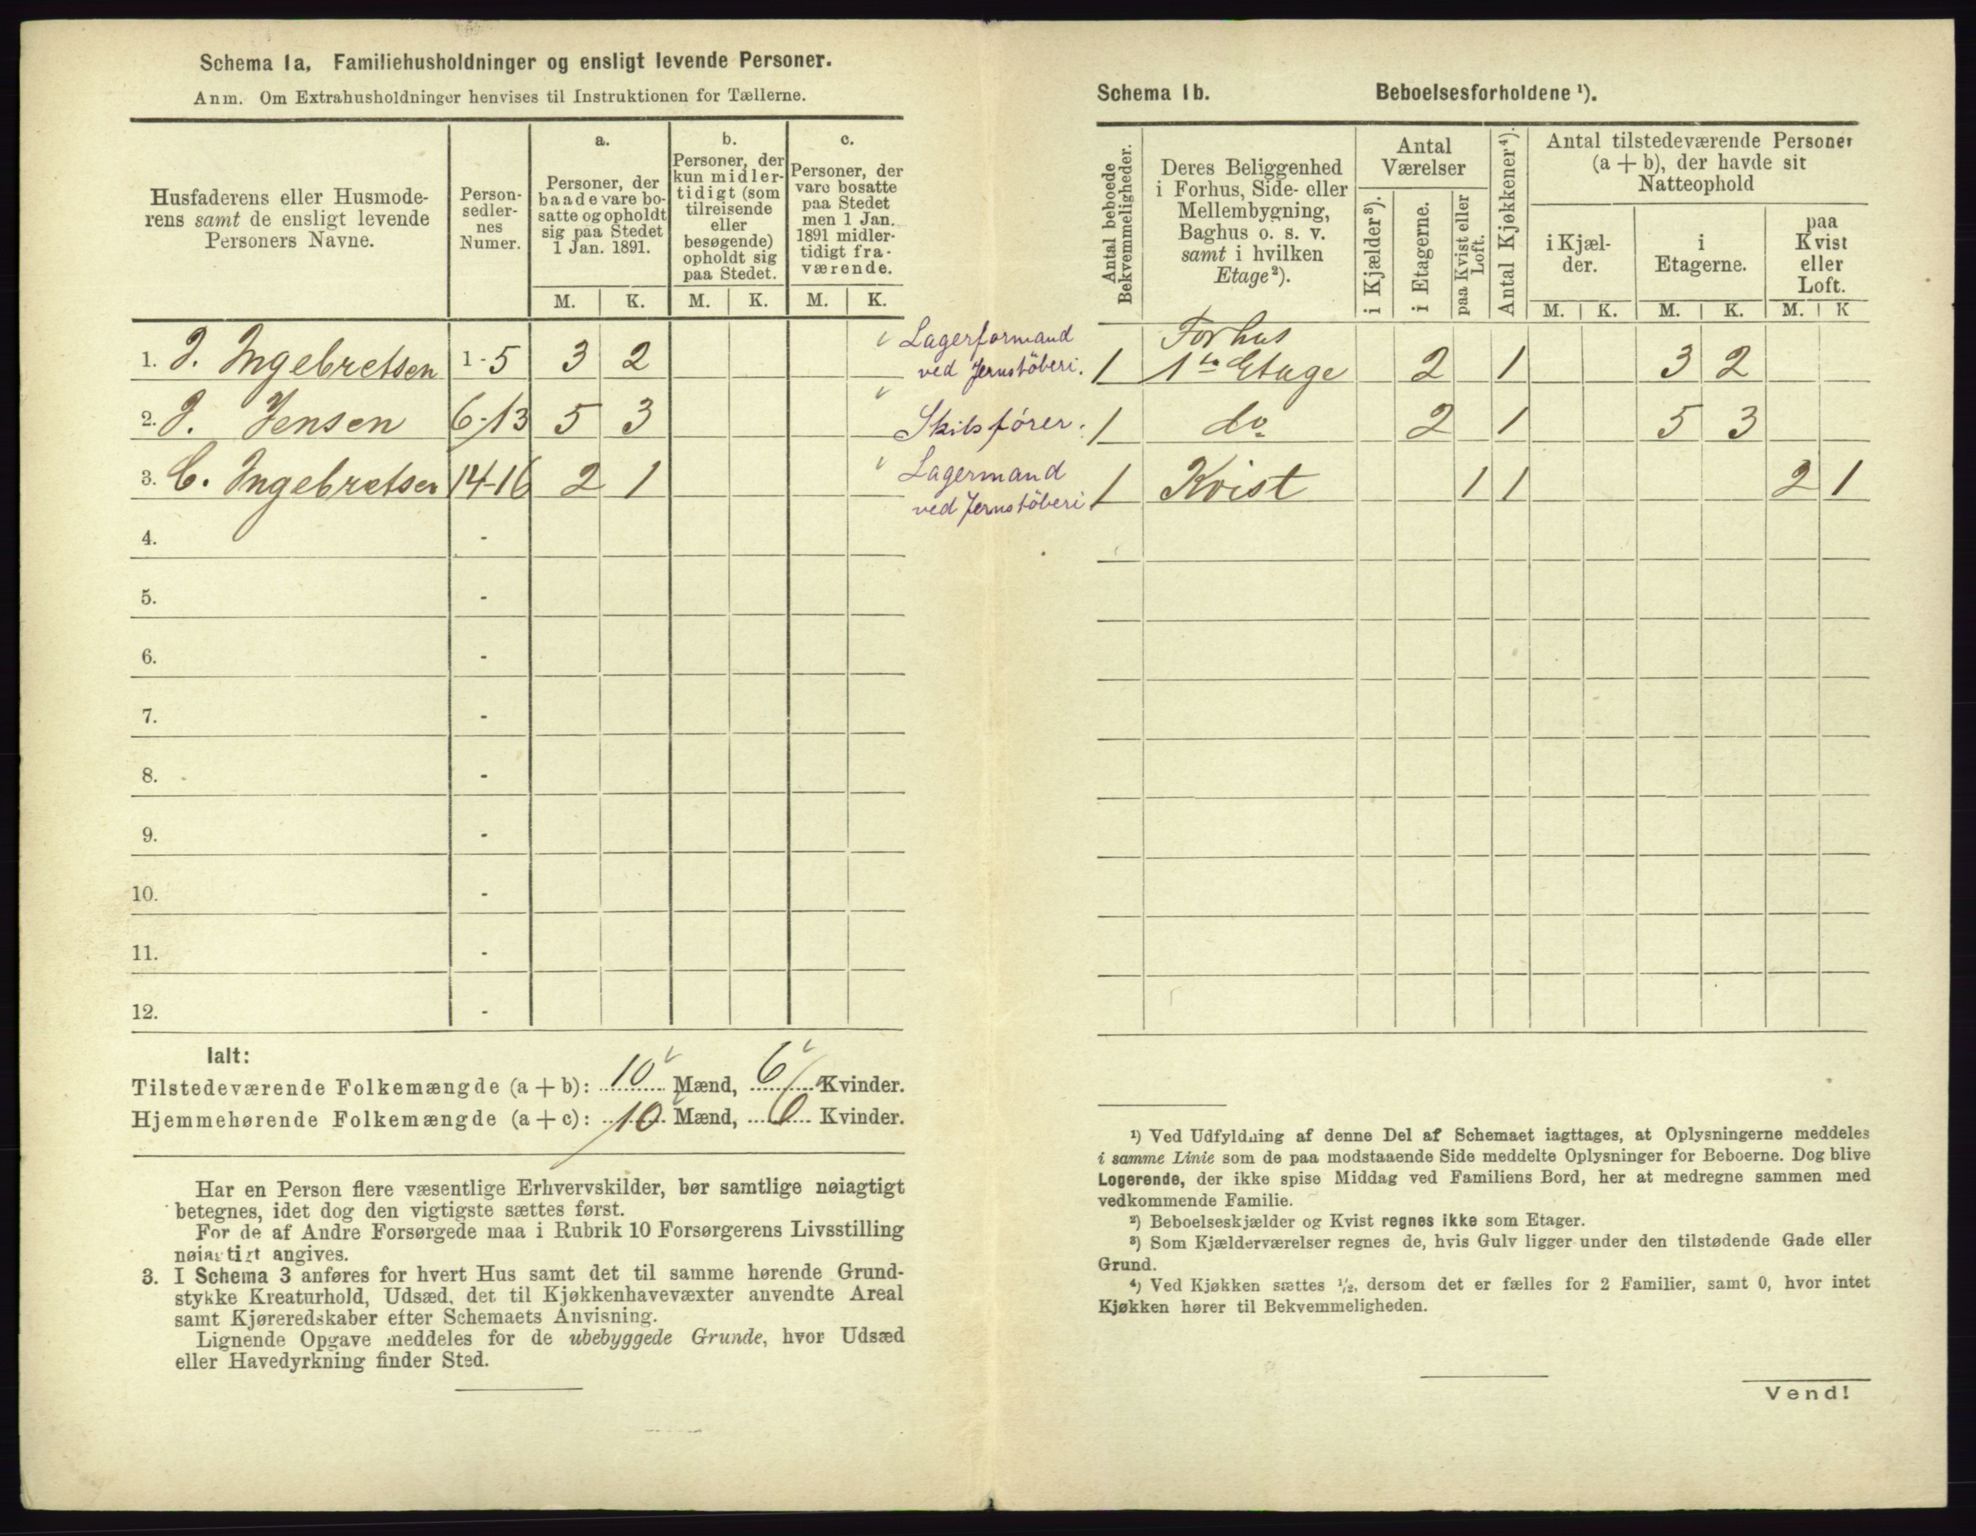 Schema 1a. Familiehusholdninger og ensligt levende Personer.
Anm. Om Extrahusholdninger henvises til Instruktionen for Tællerne.
Husfaderens eller Husmode-
rens samt de ensligt levende
Personers Navne.
Person-
sedler-
nes
Numer.
a.
Personer, der
baade vare bo-
satte og opholdt
sig paa Stedet
1 Jan. 1891.
b.
Personer, der
kun midler-
tidigt (som
tilreisende
eller
besøgende)
opholdt sig
paa Stedet.
c.
Personer, der
vare bosatte
paa Stedet
men 1 Jan.
1891 midler-
tidigt fra-
værende.
M. K. M. K. M. K.
1. J. Ingebretsen 1-5 3 2 Lagerformand
ved Jernstöberi.
2. J. Jensen 6-13 5 3 Skibsfører.
3. C. Ingebretsen 14-16 2 1 Lagermand
ved Jernstöberi
4. -
5. -
6. -
7. -
8. -
9. -
10. -
11. -
12. -
Ialt:
Tilstedeværende Folkemængde (a + b): 10 Mænd, 6 Kvinder.
Hjemmehørende Folkemængde (a + c): 10 Mænd, 6 Kvinder.
Har en Person flere væsentlige Erhvervskilder, bør samtlige nøiagtigt
betegnes, idet dog den vigtigste sættes først.
For de af Andre Forsørgede maa i Rubrik 10 Forsørgerens Livsstilling
nøiagtigt angives.
3. I Schema 3 anføres for hvert Hus samt det til samme hørende Grund-
stykke Kreaturhold, Udsæd, det til Kjøkkenhavevæxter anvendte Areal
samt Kjøreredskaber efter Schemaets Anvisning.
Lignende Opgave meddeles for de ubebyggede Grunde, hvor Udsæd
eller Havedyrkning finder Sted.
Schema 1b. Beboelsesforholdene ¹).
Antal beboede
Bekvemmeligheder.
Deres Beliggenhed
i Forhus, Side- eller
Mellembygning,
Baghus o. s. v.
samt i hvilken
Etage²).
Antal
Værelser
i Kjælder³).
i Etagerne.
paa Kvist eller
Loft.
Antal Kjøkkener⁴).
Antal tilstedeværende Personer
(a + b), der havde sit
Natteophold
i Kjæl-
der.
i
Etagerne.
paa
Kvist
eller
Loft.
M. K. M. K. M. K
Forhus
1 1ste Etage 2 1 3 2
1 do 2 1 5 3
1 Kvist 1 1 2 1
¹) Ved Udfyldning af denne Del af Schemaet iagttages, at Oplysningerne meddeles
i samme Linie som de paa modstaaende Side meddelte Oplysninger for Beboerne. Dog blive
Logerende, der ikke spise Middag ved Familiens Bord, her at medregne sammen med
vedkommende Familie.
²) Beboelseskjælder og Kvist regnes ikke som Etager.
³) Som Kjælderværelser regnes de, hvis Gulv ligger under den tilstødende Gade eller
Grund.
⁴) Ved Kjøkken sættes ½, dersom det er fælles for 2 Familier, samt 0, hvor intet
Kjøkken hører til Bekvemmeligheden.
Vend!